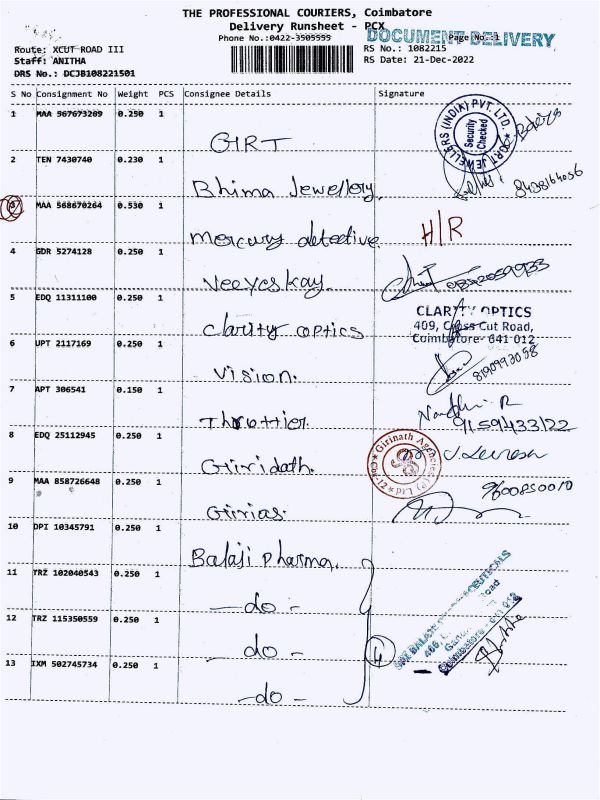 THE PROFESSIONAL COURIERS, Coimbatore
Delivery Runsheet - PCX
Phone No.:0422-3505555
DOCUMENT DELIVERY
Page No.:1
Route: XCUT ROAD III
Staff: ANITHA
DRS No.: DCJB108221501
RS No.: 1082215
RS Date: 21-Dec-2022
S No Consignment No Weight PCS Consignee Details Signature
1 MAA 567673269 0.250 1 GIRT
JEWELLERS (INDIA) PVT. LTD.
Security Checked
2 TEN 7430740 0.230 1 Bhima Jewellery
8438164056
3 MAA 568670264 0.530 1 mercury detective H/R
4 GDR 5274128 0.250 1 Veeyeskay.
5 EDQ 11311100 0.250 1 Clarity optics
CLARITY OPTICS
409, Cross Cut Road,
Coimbatore- 641 012
6 UPT 2117169 0.250 1 Vision.
8190993058
7 APT 306541 0.150 1
9159433122
8 EDQ 25112945 0.250 1 Giridath.
Girinath Agencies (P) Ltd
9 MAA 858726648 0.250 1 Girias.
9600850010
10 DPI 10345791 0.250 1 Balaji pharma.
11 TRZ 102040543 0.250 1 -do-
12 TRZ 115350559 0.250 1 -do-
4
13 IXM 502745734 0.250 1 -do-